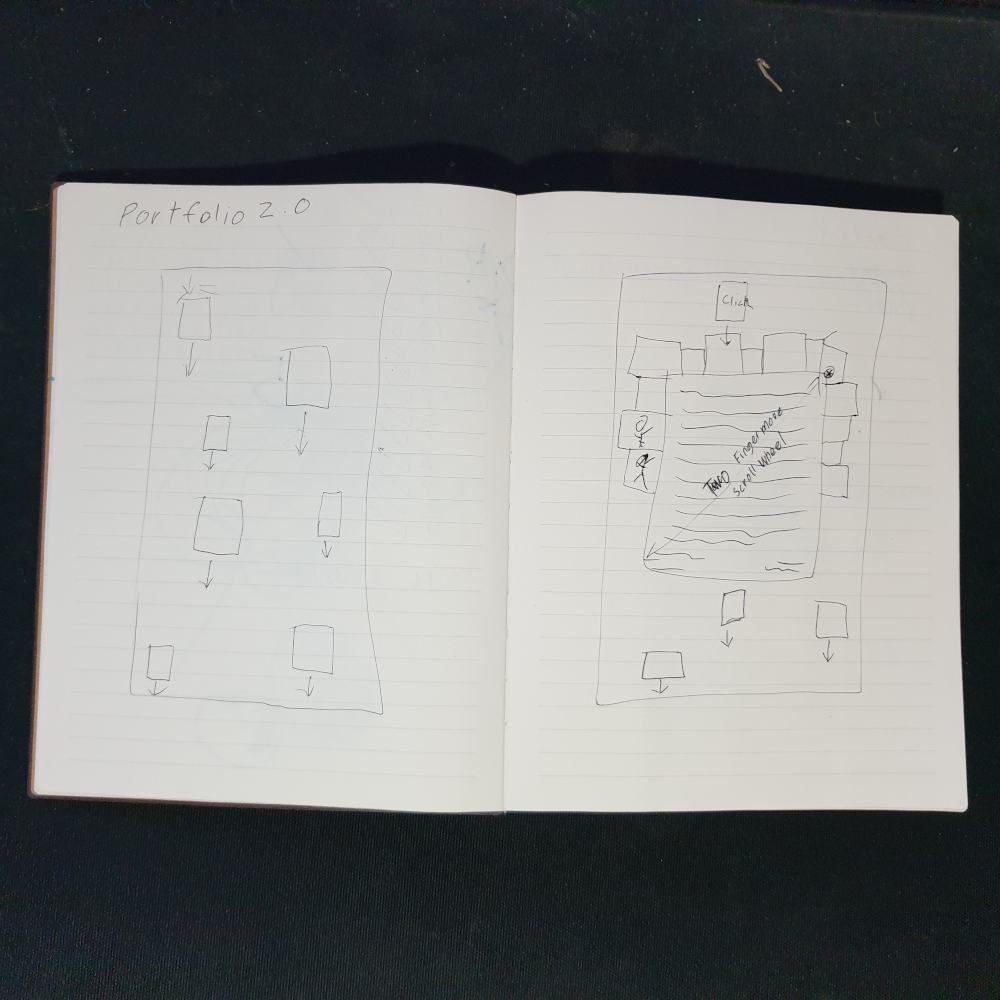 Portfolio 2.0
Click
Two Finger move
scroll wheel